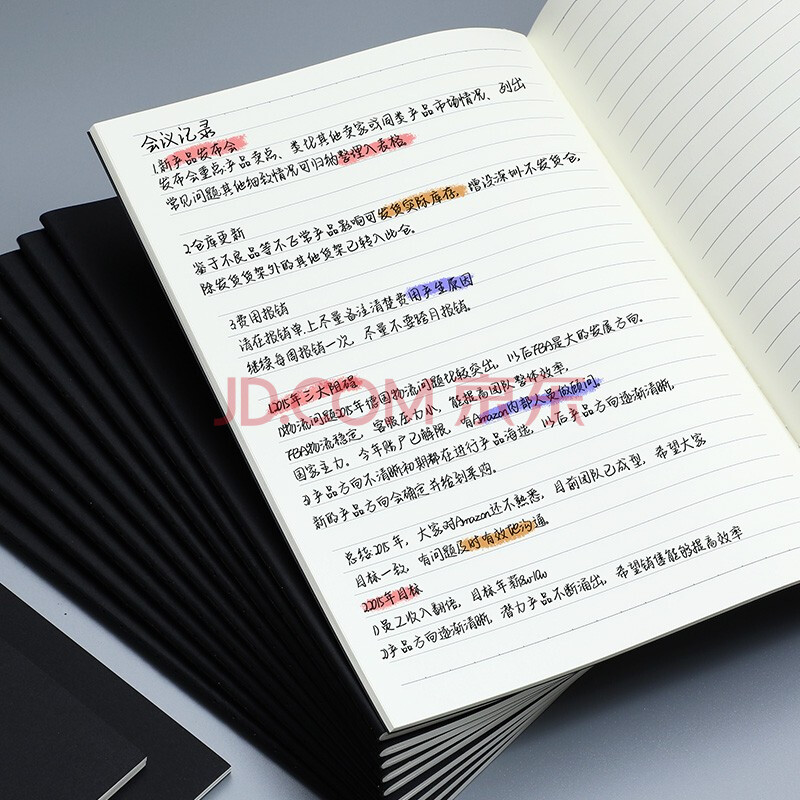 会议记录
1.新产品发布会
发布会重点:产品卖点、类比其他卖家或同类产品市场情况、列出
常见问题其他细致情况可归纳整理入表格。
2.仓库更新
鉴于不良品等不正常产品影响可发货实际库存,增设深圳-不发货仓,
除发货货架外的其他货架已转入此仓。
3.费用报销
请在报销单上尽量备注清楚费用产生原因
继续每周报销一次,尽量不要跨月报销。
1.2015年三大阻碍
1)物流问题2015年德国物流问题比较突出,以后FBA是大的发展方向。
FBA物流稳定,客服压力小,能提高团队整体效率,
国家主力。今年账户已解限,有Amazon内部人员做顾问,
3)产品方向不清晰初期都在进行产品海选,以后产品方向逐渐清晰,
新的产品方向会确定并给到采购。
总结:2015年,大家对Amazon还不熟悉,目前团队已成型,希望大家
目标一致,有问题及时有效地沟通。
2.2015年目标
1)员工收入翻倍,目标年薪
2)产品方向逐渐清晰,潜力产品不断涌出,希望销售能够提高效率
JD.COM 京东